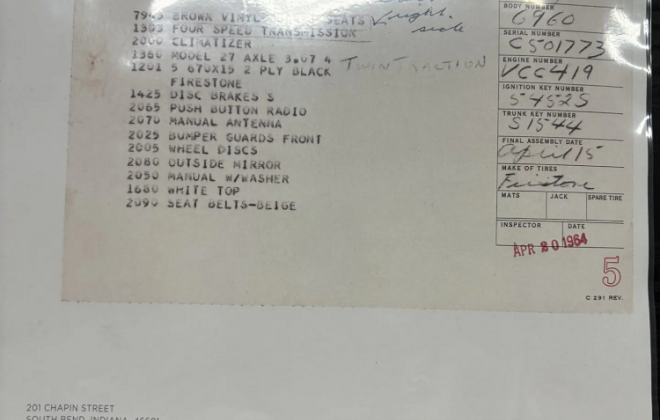 BROWN VINYL SEATS right.
1593 FOUR SPEED TRANSMISSION side
2000 CLIMATIZER
1360 MODEL 27 AXLE 3.07 4 TWIN TRACTION
1201 5 670X15 2 PLY BLACK
FIRESTONE
1425 DISC BRAKES S
2065 PUSH BUTTON RADIO
2070 MANUAL ANTENNA
2025 BUMPER GUARDS FRONT
2005 WHEEL DISCS
2080 OUTSIDE MIRROR
2050 MANUAL W/WASHER
1680 WHITE TOP
2090 SEAT BELTS-BEIGE
BODY NUMBER
6960
SERIAL NUMBER
C501773
ENGINE NUMBER
VCC419
IGNITION KEY NUMBER
S4525
TRUNK KEY NUMBER
S1544
FINAL ASSEMBLY DATE
April 15
MAKE OF TIRES
Firestone
MATS JACK SPARE TIRE
INSPECTOR DATE
APR 20 1964
5
C 291 REV.
201 CHAPIN STREET
SOUTH BEND, INDIANA